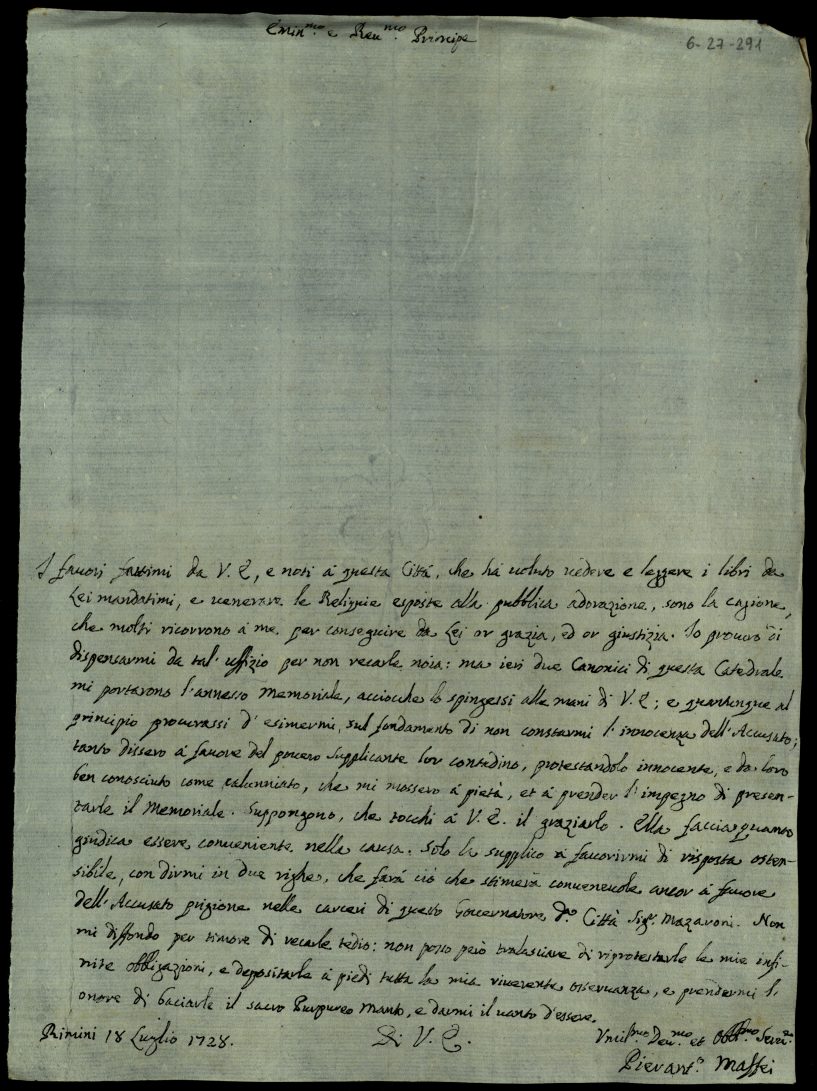 Emin.mo e Reu.mo Principe
6-27-291
I fauori fattimi da V. E., e noti à questa Città, che hà uoluto uedere e leggere i libri da
Lei mandatimi, e uenerare le Reliquie esposte alla pubblica adorazione, sono la cagione,
che molti ricorrono à me per conseguire da Lei or grazia, ed or giustizia. Io procuro di
dispensarmi da tal' uffizio per non recarle noia: ma ieri due Canonici di questa Catedrale
mi portarono l'annesso Memoriale, acciocche lo spingessi alle mani di V. E.; e quantunque al
principio procurassi d'esimermi, sul fondamento di non constarmi l'innocenza dell'Accusato;
tanto dissero à fauore del pouero supplicante lor contadino, protestandolo innocente, e da loro
ben conosciuto come calunniato, che mi mossero à pietà, et à prender l'impegno di presen-
tarle il Memoriale. Suppongono, che tocchi à V. E. il graziarlo. Ella faccia quanto
giudica essere conueniente nella causa. Solo la supplico à fauorirmi di risposta osten-
sibile, con dirmi in due righe, che farà ciò che stimerà conueneuole ancor à fauore
dell'Accusato prigione nelle carceri di questo Gouernatore d.a Città Sig.r Mazaroni. Non
mi diffondo per timore di recarle tedio: non posso però tralasciare di riprotestarle le mie infi-
nite obbligazioni, e depositarle à piedi tutta la mia riuerente osseruanza, e prendermi l'
onore di baciarle il sacro Purpureo Manto, e darmi il uanto d'essere.
Rimini 18 Luglio 1728.
Di V. E.
Vmil.mo Deu.mo et Obb.mo Seru.re
Pierant.o Maffei